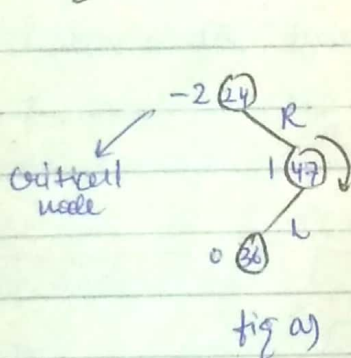 -2 24
R
critical
node
1 47
L
0 36
fig a)